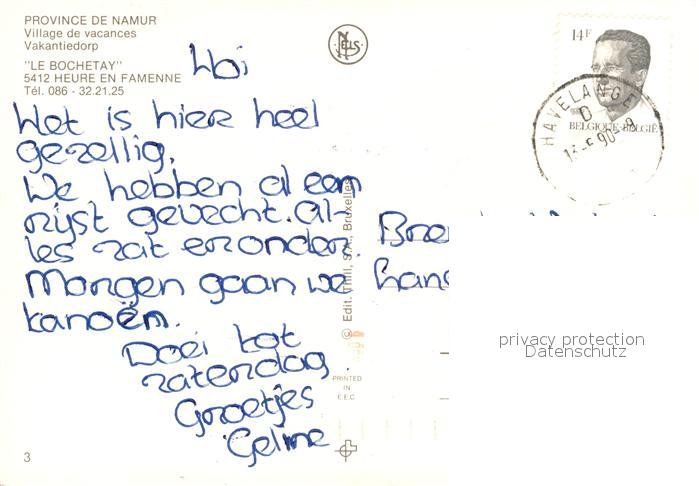 PROVINCE DE NAMUR
Village de vacances
Vakantiedorp
"LE BOCHETAY"
5412 HEURE EN FAMENNE
Tél. 086 - 32.21.25
NELS
14F
BELGIQUE-BELGIË
HAVELANGE
D
Hoi
Het is hier heel
gezellig.
We hebben al een
rijst gevecht. Al-
les zat eronder.
Morgen gaan we
kanoën.
Doei tot
zaterdag.
Groetjes
Geline
© Edit. Thill, S.A., Bruxelles
PRINTED
IN
E.E.C
3
privacy protection
Datenschutz